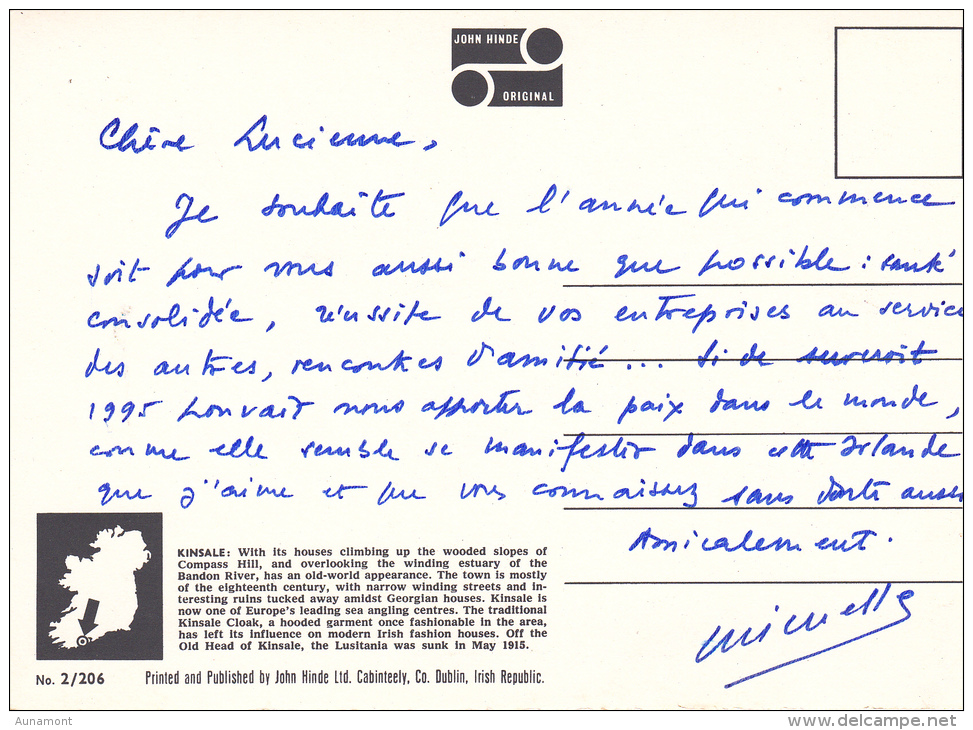 JOHN HINDE
ORIGINAL
Chère Lucienne,
Je souhaite que l'année qui commence
soit pour vous aussi bonne que possible : santé
consolidée, réussite de vos entreprises au service
des autres, rencontres d'amitié... Si
1995 pouvait nous apporter la paix dans le monde,
comme elle semble se manifester dans cette Irlande
que j'aime et que vous connaissez sans doute aussi
Amicalement.
KINSALE: With its houses climbing up the wooded slopes of
Compass Hill, and overlooking the winding estuary of the
Bandon River, has an old-world appearance. The town is mostly
of the eighteenth century, with narrow winding streets and in-
teresting ruins tucked away amidst Georgian houses. Kinsale is
now one of Europe's leading sea angling centres. The traditional
Kinsale Cloak, a hooded garment once fashionable in the area,
has left its influence on modern Irish fashion houses. Off the
Old Head of Kinsale, the Lusitania was sunk in May 1915.
No. 2/206
Printed and Published by John Hinde Ltd. Cabinteely, Co. Dublin, Irish Republic.
Aunamont
www.delcampe.net